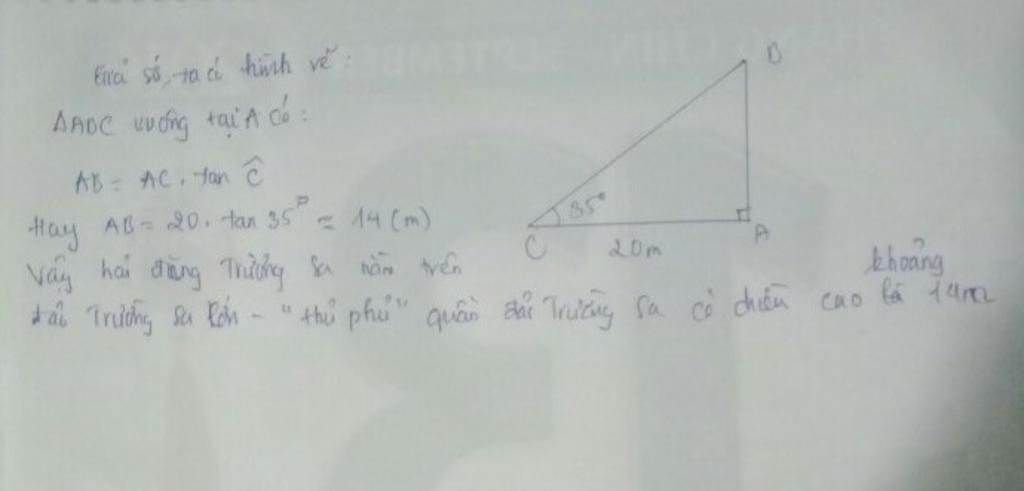 Giả sử, ta có hình vẽ:
ΔABC vuông tại A có:
AB = AC. tan Ĉ
Hay AB = 20. tan 35° ≈ 14 (m)
Vậy hải đăng Trường Sa nằm trên
đảo Trường Sa Lớn - "thủ phủ" quần đảo Trường Sa có chiều cao là khoảng 14m
B
35°
C
20m
A